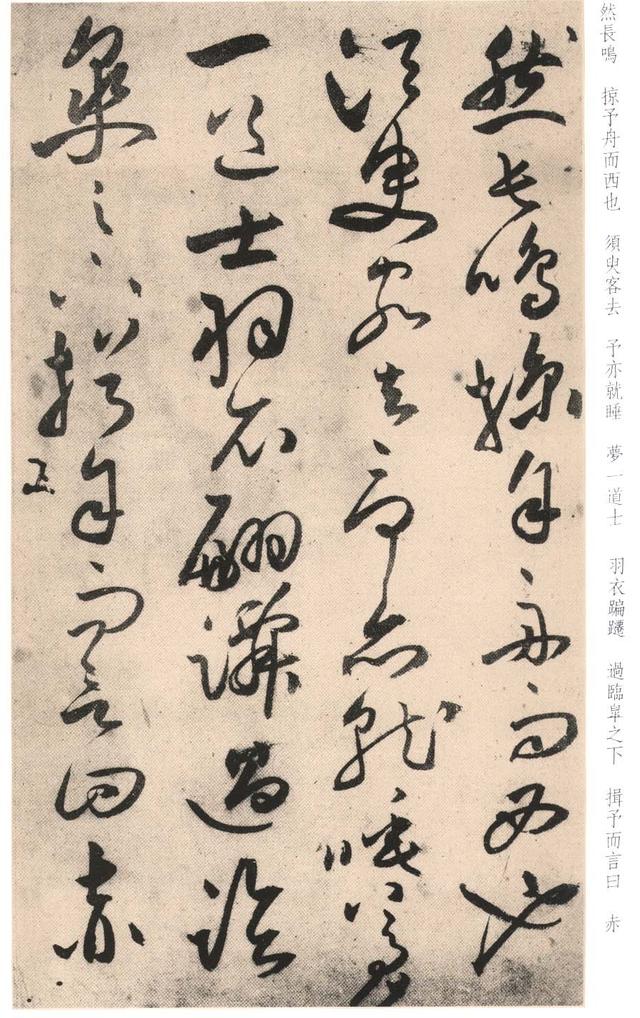 然長鳴 掠予舟而西也 須臾客去 予亦就睡 夢一道士 羽衣蹁躚 過臨皐之下 揖予而言曰 赤
然長鳴掠予舟而西也
須臾客去予亦就睡夢
一道士羽衣翩躚過臨
皐之下揖予而言曰赤